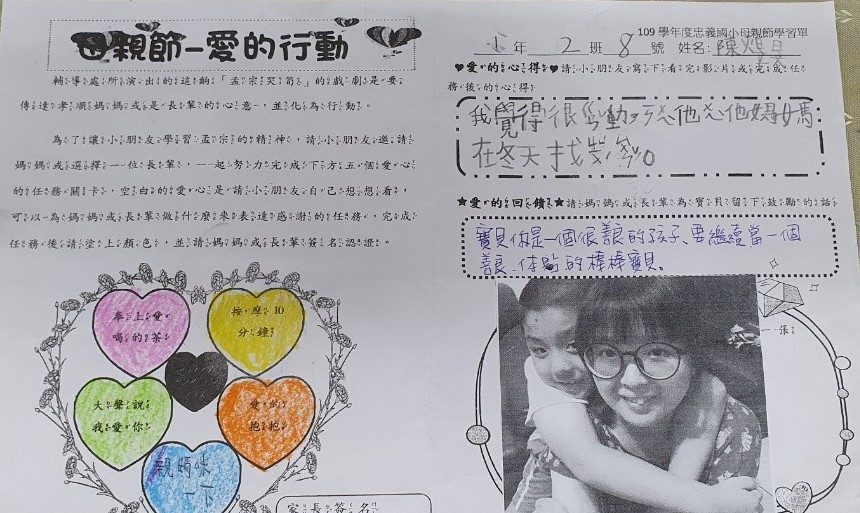 母親節-愛的行動
輔導處所演出的這齣「孟宗哭筍」的戲劇是要
傳達孝順媽媽或是長輩的心意,並化為行動。
為了讓小朋友學習孟宗的精神,請小朋友邀請
媽媽或選擇一位長輩,一起努力完成下方五個愛心
的任務關卡,空白的愛心是請小朋友自己想想看,
可以為媽媽或長輩做什麼來表達感謝的任務,完成
任務後請塗上顏色,並請媽媽或長輩簽名認證。
奉上愛
喝的茶
按摩10
分鐘
大聲說
我愛你
愛的
抱抱
親媽咪
一下
家長簽名
109學年度忠義國小母親節學習單
年 2 班 8 號 姓名:陳
♥愛的心得♥請小朋友寫下看完影片或完成任
務後的心得
我覺得很感動,孟宗他為他媽媽
在冬天找ㄓㄨˊ筍。
★愛的回饋★請媽媽或長輩為寶貝留下鼓勵的話
寶貝你是一個很善良的孩子、要繼續當一個
善良、体貼的棒棒寶貝。
一張